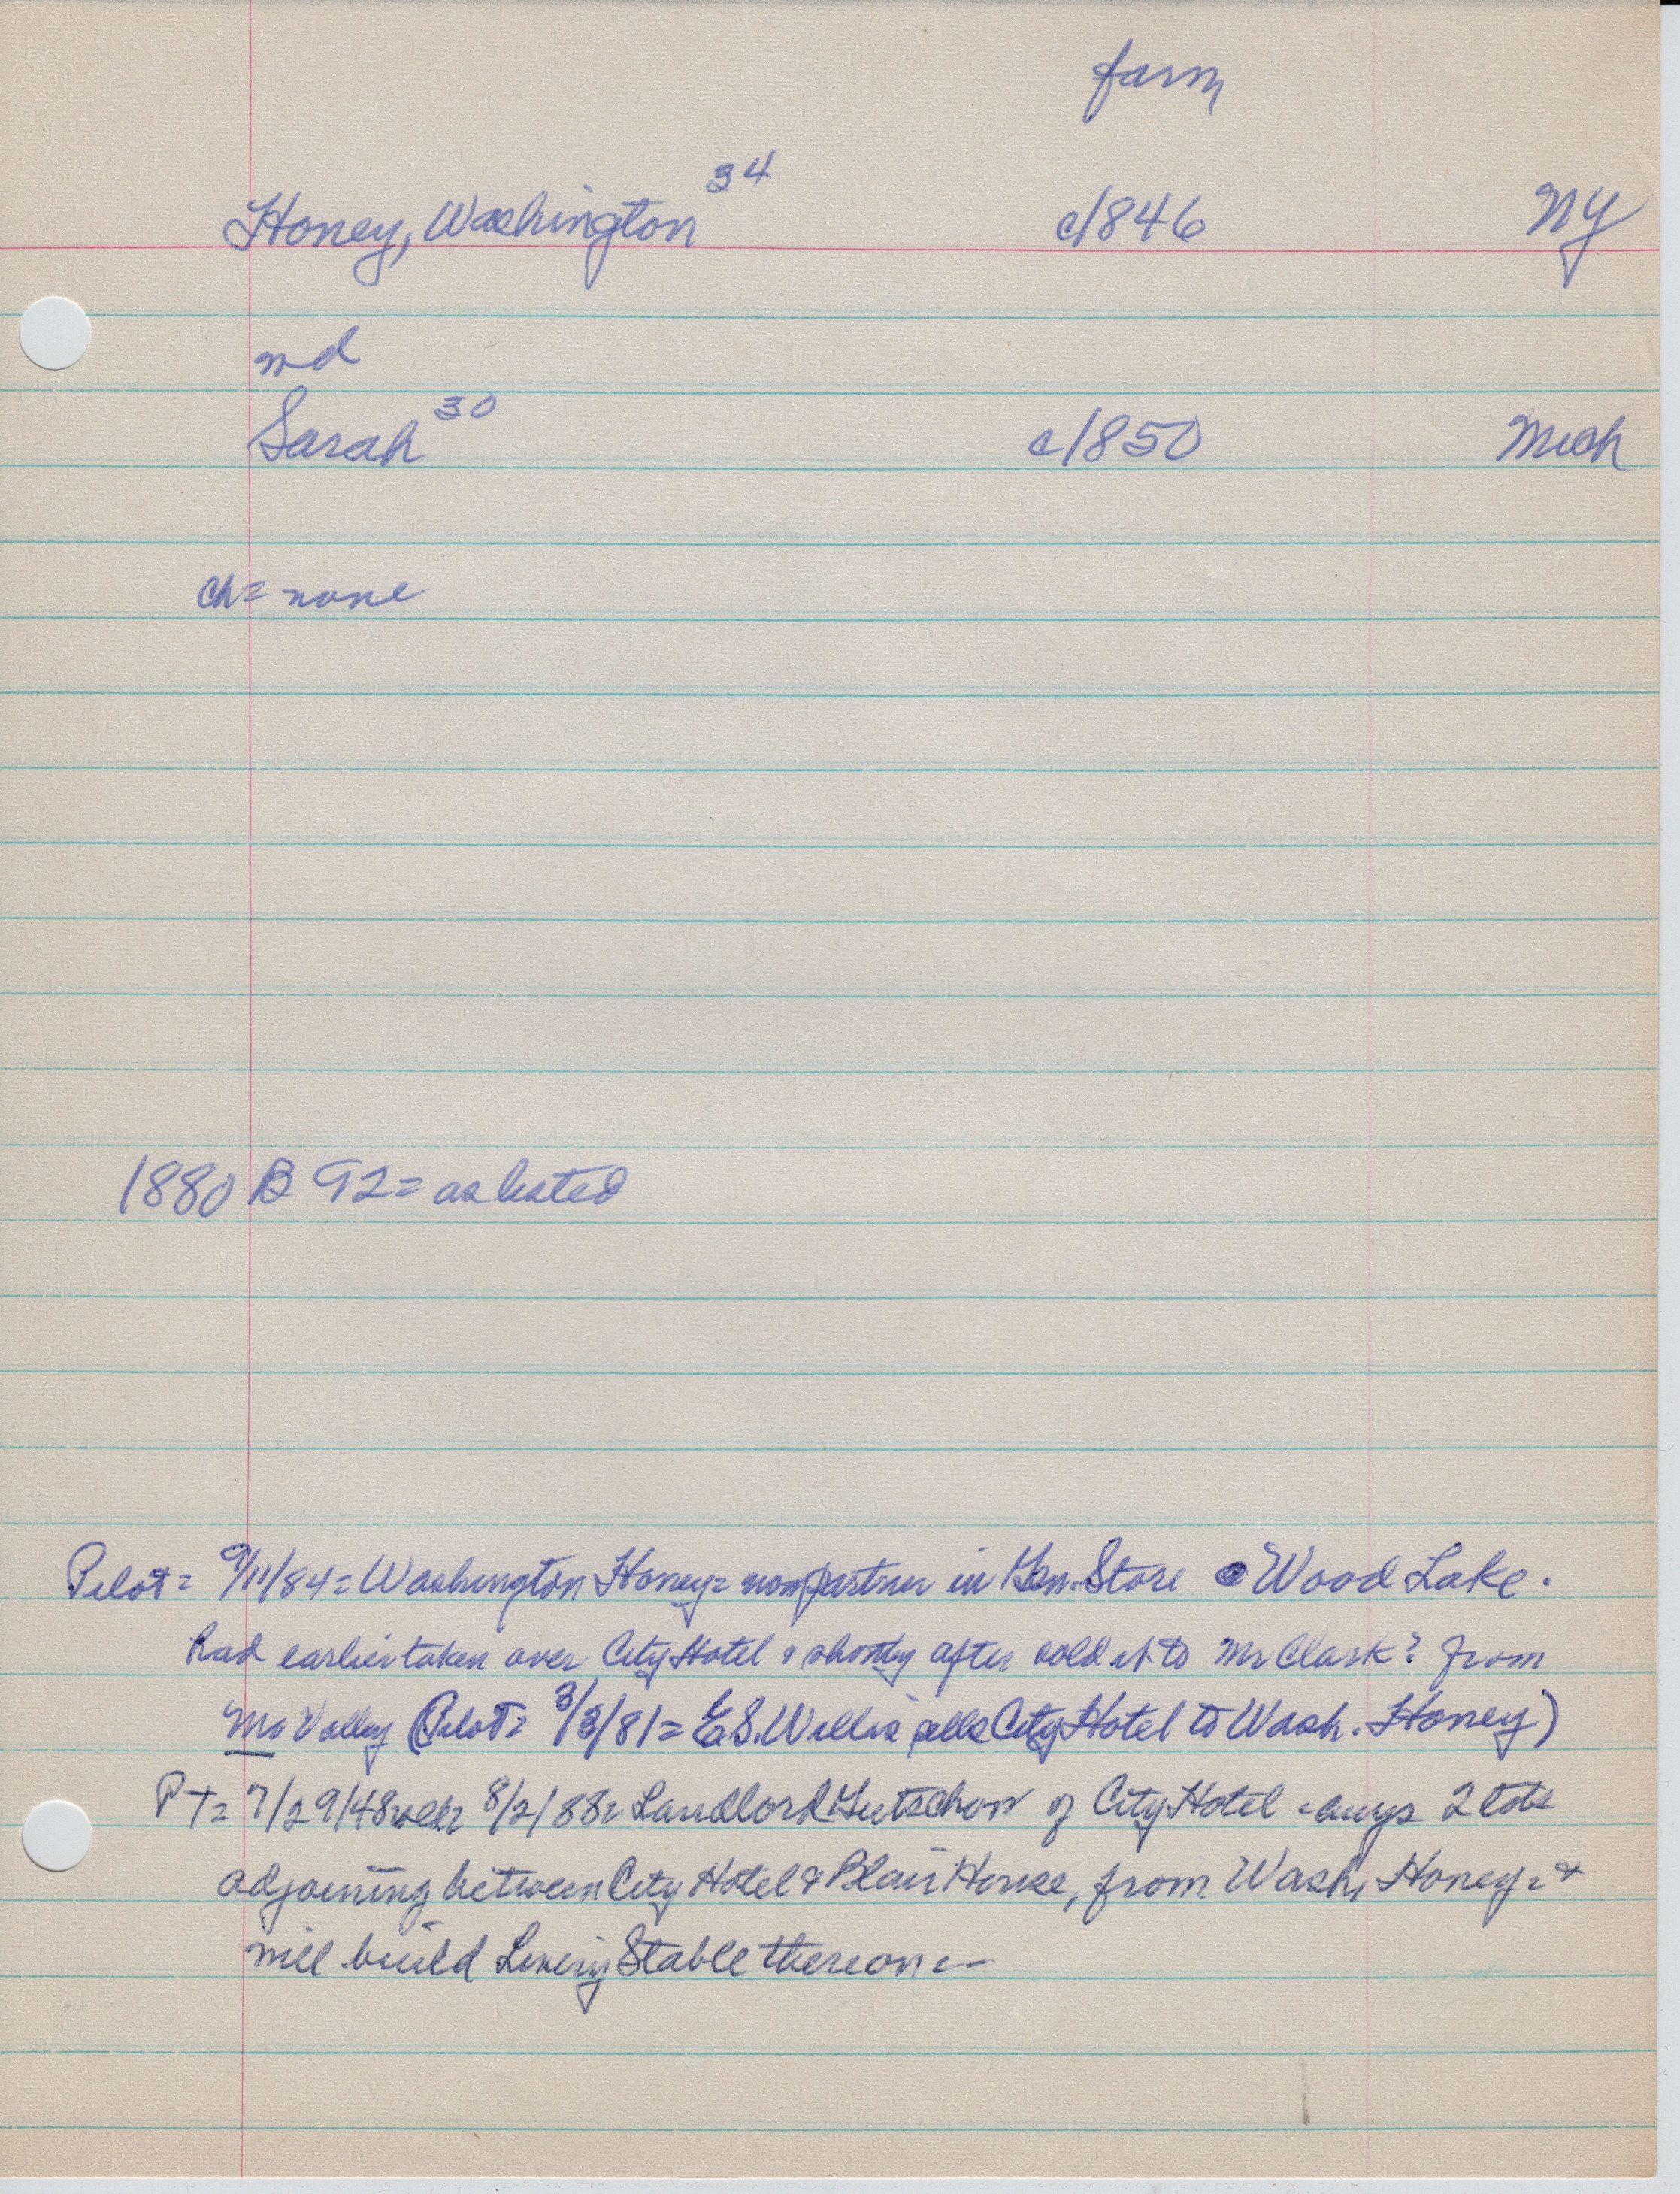 farm
Honey, Washington 34 c1846 NY
md
Sarah 30 c1850 Mich
ch= none
1880 B 92= as listed
Pilot= 9/11/84= Washington Honey= now partner in Gen. Store @ Wood Lake.
had earlier taken over City Hotel & shortly after sold it to Mr Clark? from
Mo Valley (Pilot= 3/3/81= E.S. Willis sells City Hotel to Wash. Honey)
PT= 7/29/48 8/2/88= Landlord Gutschow of City Hotel =buys 2 lots
adjoining between City Hotel & Blair House, from Wash. Honey= &
will build Livery Stable thereon=-